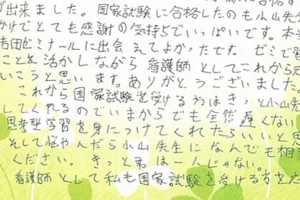 出来ました。国家試験に合格したのも小山先
かげでとても感謝の気持ちでいっぱいです。本
吉田ゼミナールに出会えてよかったです。ゼミで
ことを活かしながら看護師としてこれから
いこうと思います。ありがとうございました。
これから国家試験を受ける方はきっと小山
してくれるので、いまからでも全然遅くない
思考型学習を身につけてくれたらいいと思
そして悩やんだら小山先生になんでも相
ください。きっと、一人じゃない。
看護師として私も国家試験を受ける